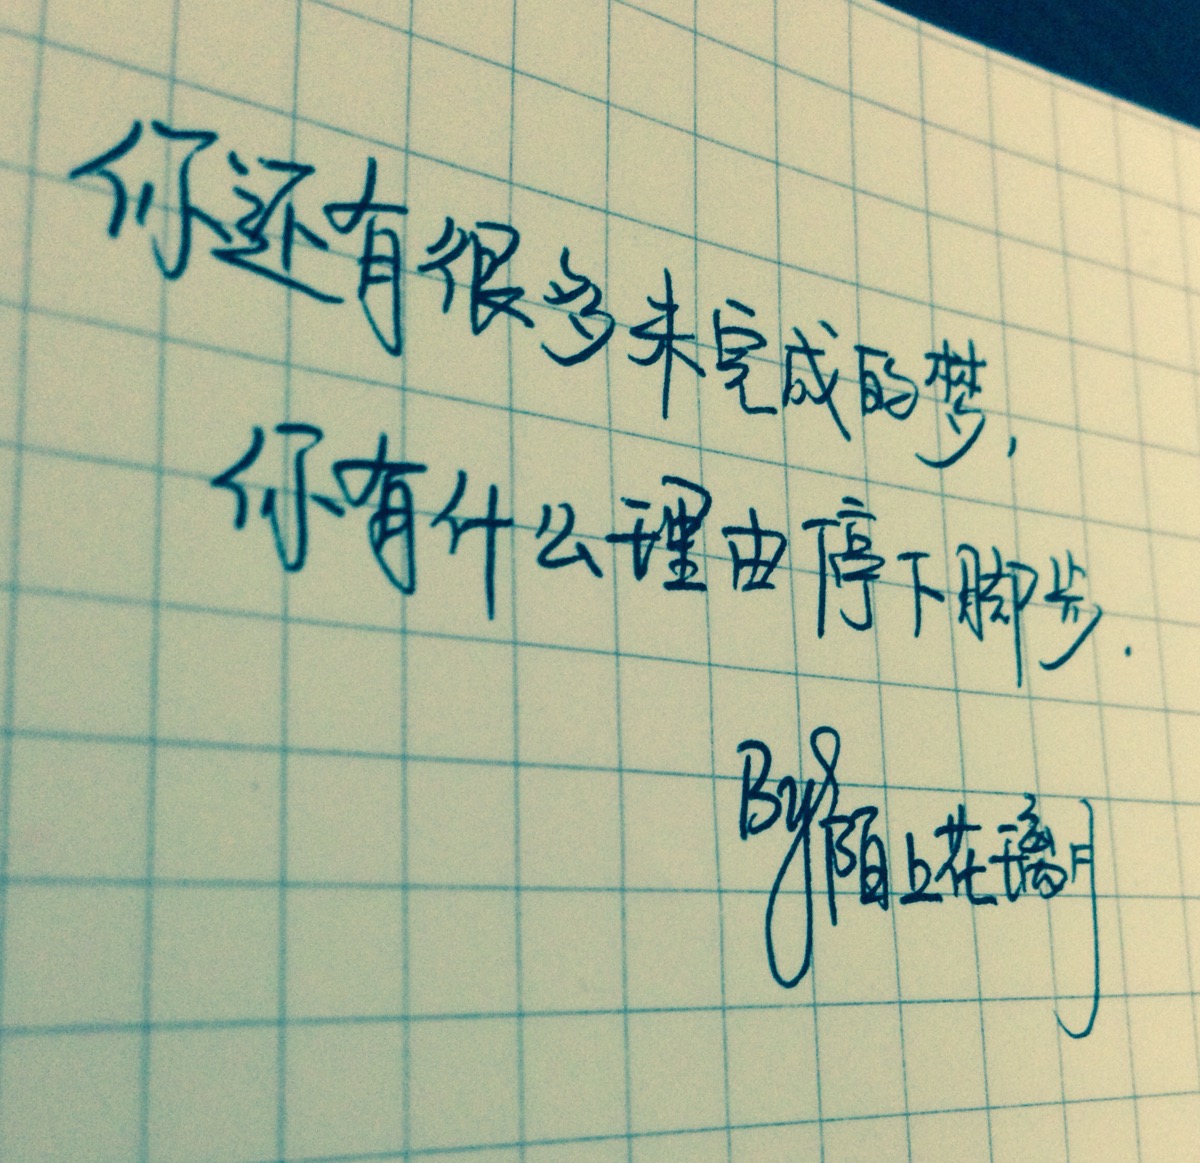 你还有很多未完成的梦,
你有什么理由停下脚步.
By 陌上花璃月